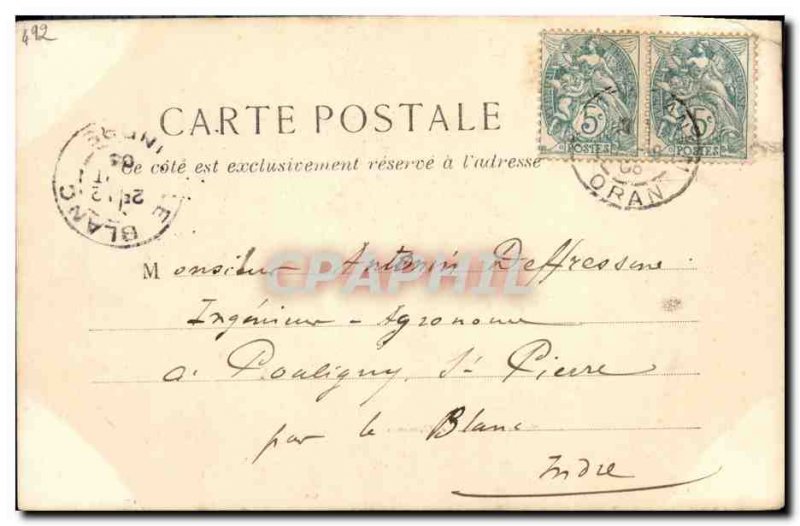 492
CARTE POSTALE
Ce côté est exclusivement réservé à l'adresse
5c POSTES
5c POSTES
ORAN
LE BLANC
INDRE
CPAPHIL
Monsieur Antonin Deffressine
Ingénieur - Agronome
à Pouligny St Pierre
par le Blanc
Indre